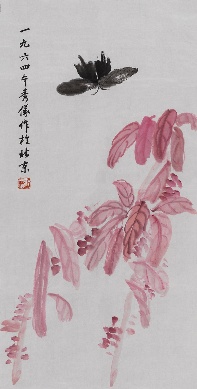 一九六四年秀儀作於北京